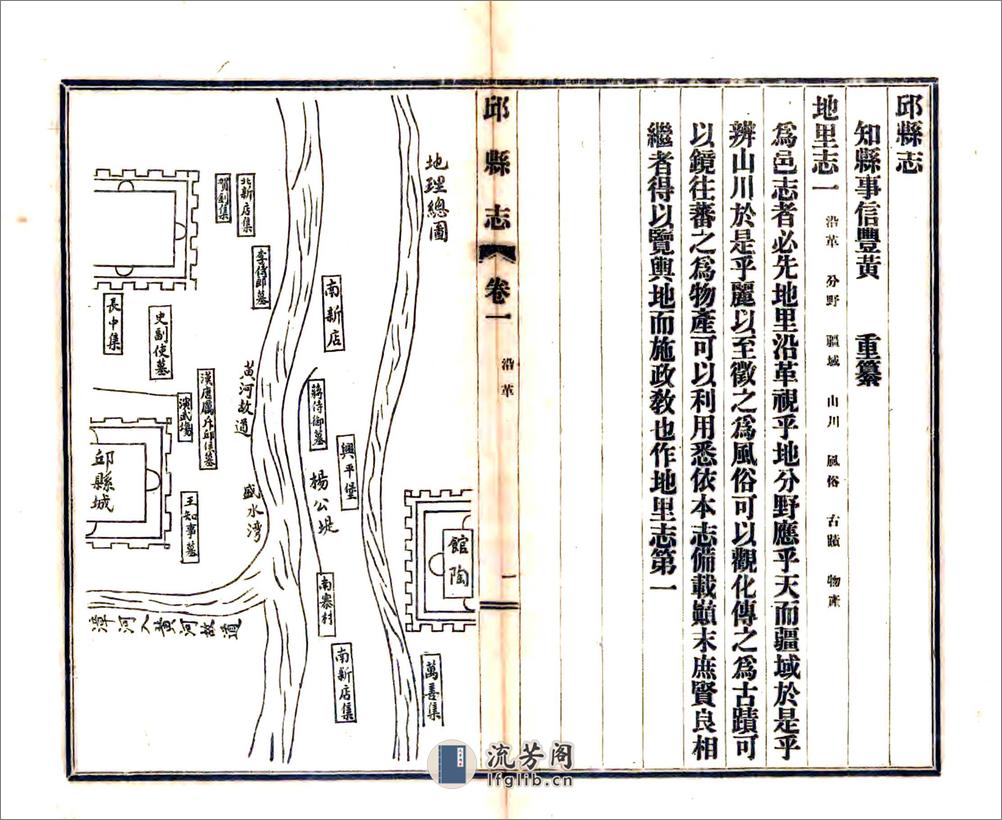 邱縣志
知縣事信豐黃　　重纂
地里志一 沿革 分野 疆域 山川 風俗 古蹟 物產
為邑志者必先地里沿革視乎地分野應乎天而疆域於是乎
辨山川於是乎麗以至徵之為風俗可以觀化傳之為古蹟可
以鏡往蕃之為物產可以利用悉依本志備載巔末庶賢良相
繼者得以覽輿地而施政教也作地里志第一
邱縣志
卷一
沿革
一
地理總圖
館陶
萬善集
南新店
蔣侍御墓
興平堡
楊公堤
南寨村
南新店集
北新店集
賀釗集
李侍郎墓
黃河故道
盛水湾
長中集
史副使墓
漢應厲斥邱侯墓
演武場
王知事墓
邱縣城
漳河入黃河故道
流芳阁
lfglib.cn